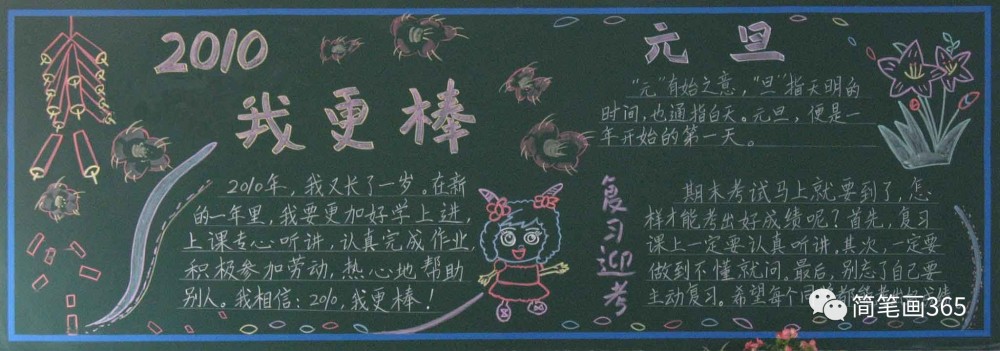 2010
我更棒
2010年,我又长了一岁。在新
的一年里,我要更加好学上进,
上课专心听讲,认真完成作业,
积极参加劳动,热心地帮助
别人。我相信:2010,我更棒!
元旦
“元”有始之意,“旦”指天明的
时间,也通指白天。元旦,便是一
年开始的第一天。
复习迎考
期末考试马上就要到了,怎
样才能考出好成绩呢?首先,复习
课上一定要认真听讲,其次,一定要
做到不懂就问,最后,别忘了自己要
主动复习。希望每个同
简笔画365